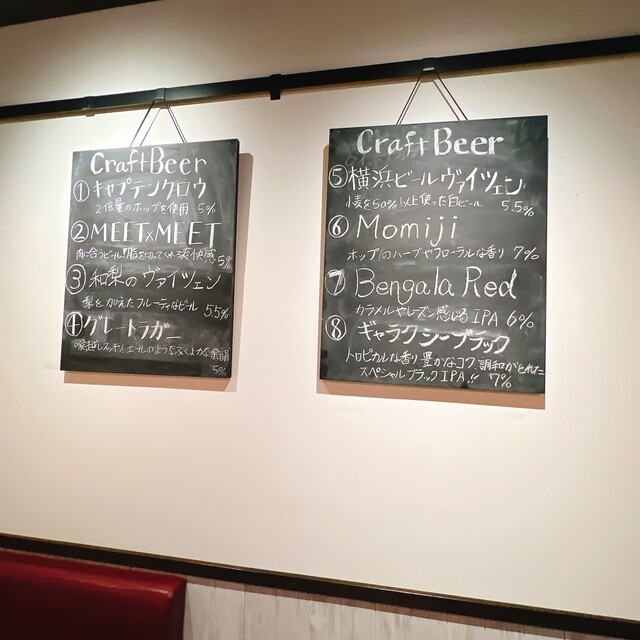 Craft Beer
①キャプテンクロウ
2倍量のホップを使用 5%
②MEET×MEET
肉に合うビール!脂を切ってくれる爽快感 5%
③和梨のヴァイツェン
梨を加えたフルーティなビール 5.5%
④グレートラガー
喉越しスッキリ、エールのようなふくよかな余韻
5%
Craft Beer
⑤横浜ビールヴァイツェン
小麦を50%以上使った白ビール 5.5%
⑥Momiji
ホップのハーブやフローラルな香り 7%
⑦Bengala Red
カラメルやレーズン感じるIPA 6%
⑧ギャラクシーブラック
トロピカルな香り豊かなコク、調和がとれた
スペシャルブラックIPA!! 7%